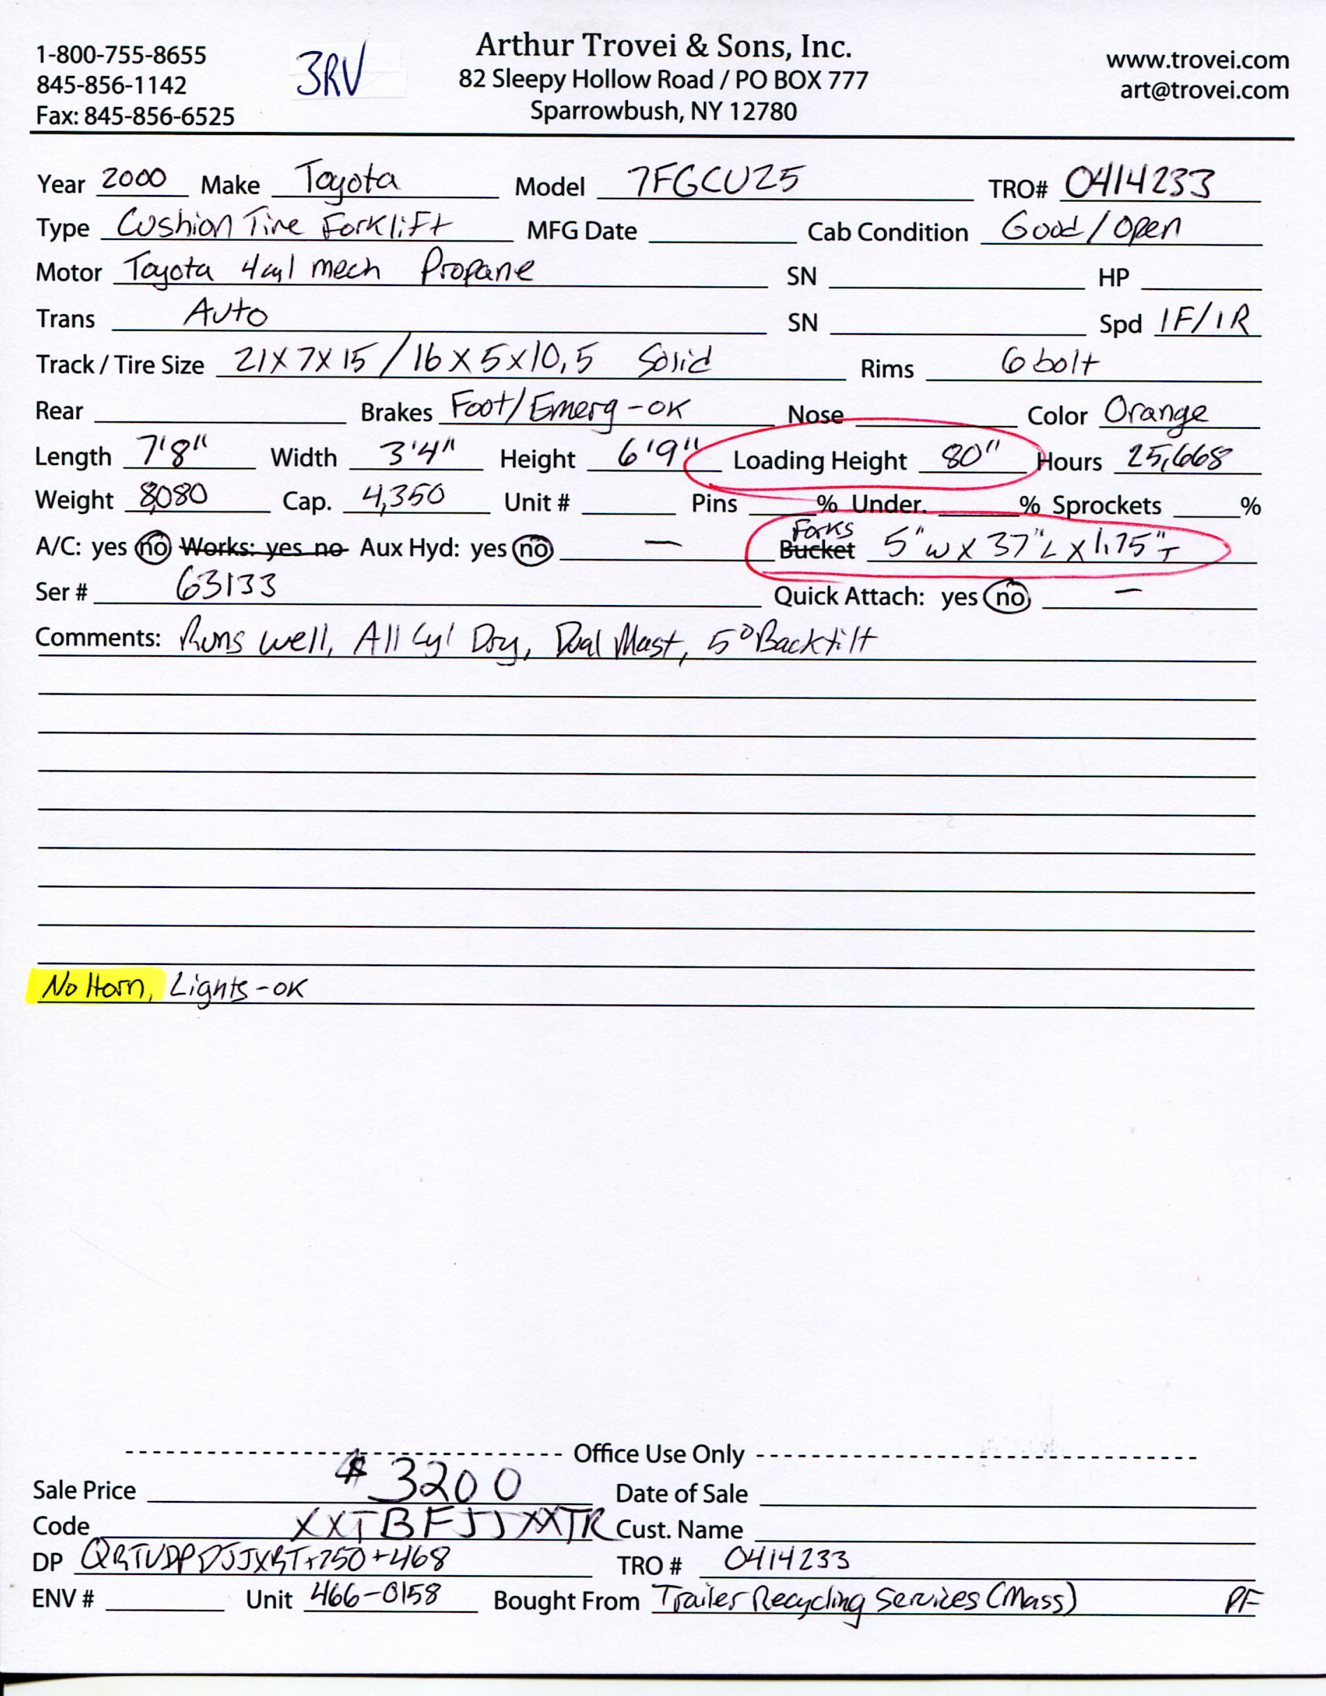 1-800-755-8655
845-856-1142
Fax: 845-856-6525
3RV
Arthur Trovei & Sons, Inc.
82 Sleepy Hollow Road / PO BOX 777
Sparrowbush, NY 12780
www.trovei.com
art@trovei.com
Year 2000 Make Toyota Model 7FGCU25 TRO# 0414233
Type Cushion Tire Forklift MFG Date Cab Condition Good/Open
Motor Toyota 4cyl mech Propane SN HP
Trans Auto SN Spd 1F/1R
Track / Tire Size 21X7X15 / 16X5X10.5 Solid Rims 6 bolt
Rear Brakes Foot/Emerg-OK Nose Color Orange
Length 7'8" Width 3'4" Height 6'9" Loading Height 80" Hours 25,668
Weight 8,080 Cap. 4,350 Unit # Pins % Under. % Sprockets %
A/C: yes no Works: yes no Aux Hyd: yes no — Bucket Forks 5"W X 37"L X 1.75"T
Ser # 63133 Quick Attach: yes no —
Comments: Runs well, All Cyl Dry, Dual Mast, 5° Backtilt
No Horn, Lights-OK
Office Use Only
Sale Price $3200 Date of Sale
Code XXTBFJJXXTR Cust. Name
DP +750+468 TRO # 0414233
ENV # Unit 466-0158 Bought From Trailer Recycling Services (Mass) PF